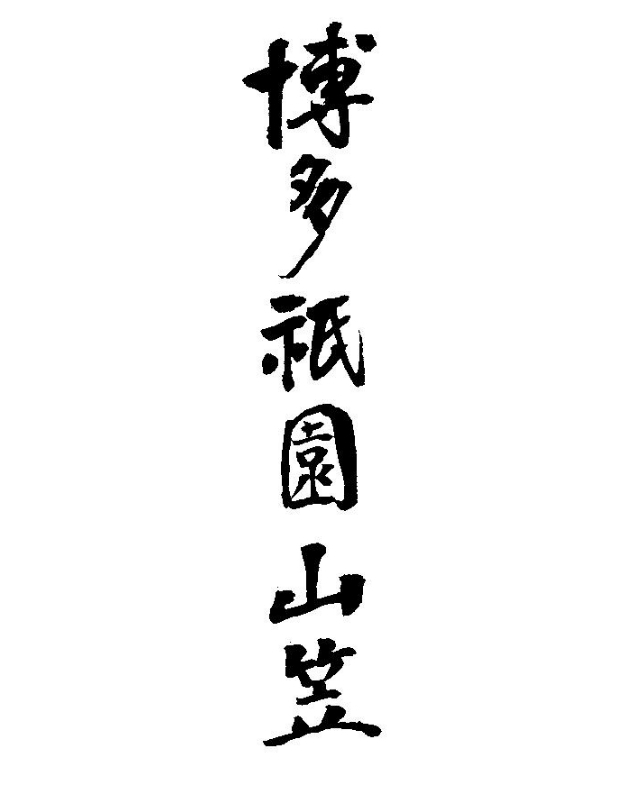 博多祇園山笠